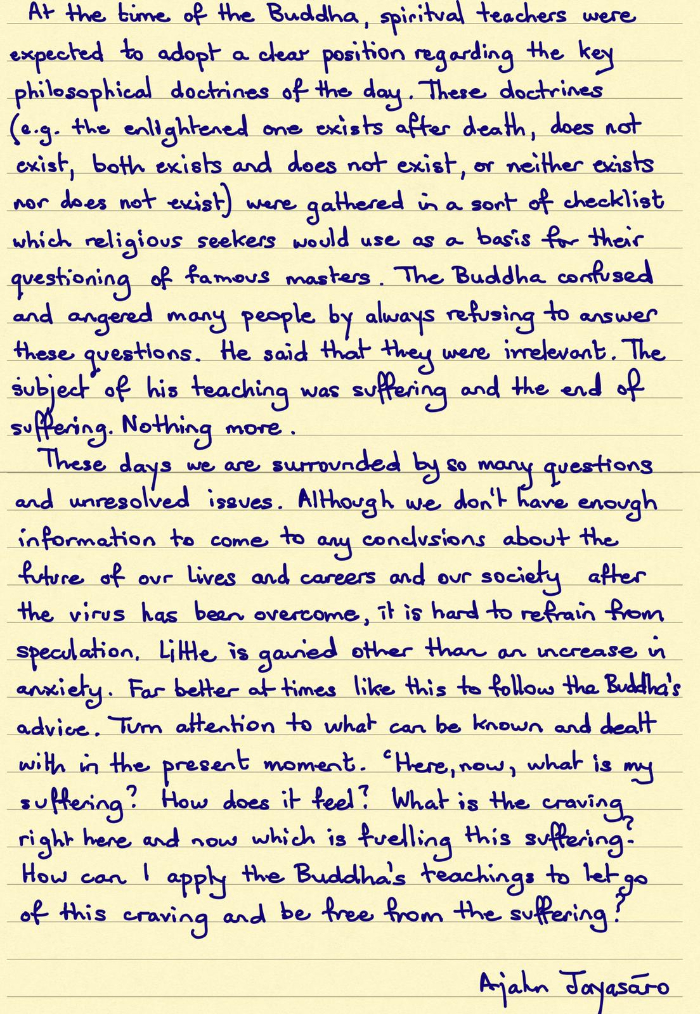 At the time of the Buddha, spiritual teachers were
expected to adopt a clear position regarding the key
philosophical doctrines of the day. These doctrines
(e.g. the enlightened one exists after death, does not
exist, both exists and does not exist, or neither exists
nor does not exist) were gathered in a sort of checklist
which religious seekers would use as a basis for their
questioning of famous masters. The Buddha confused
and angered many people by always refusing to answer
these questions. He said that they were irrelevant. The
subject of his teaching was suffering and the end of
suffering. Nothing more.
These days we are surrounded by so many questions
and unresolved issues. Although we don't have enough
information to come to any conclusions about the
future of our lives and careers and our society after
the virus has been overcome, it is hard to refrain from
speculation. Little is gained other than an increase in
anxiety. Far better at times like this to follow the Buddha's
advice. Turn attention to what can be known and dealt
with in the present moment. "Here, now, what is my
suffering? How does it feel? What is the craving
right here and now which is fuelling this suffering?
How can I apply the Buddha's teachings to let go
of this craving and be free from the suffering?
Ajahn Jayasāro